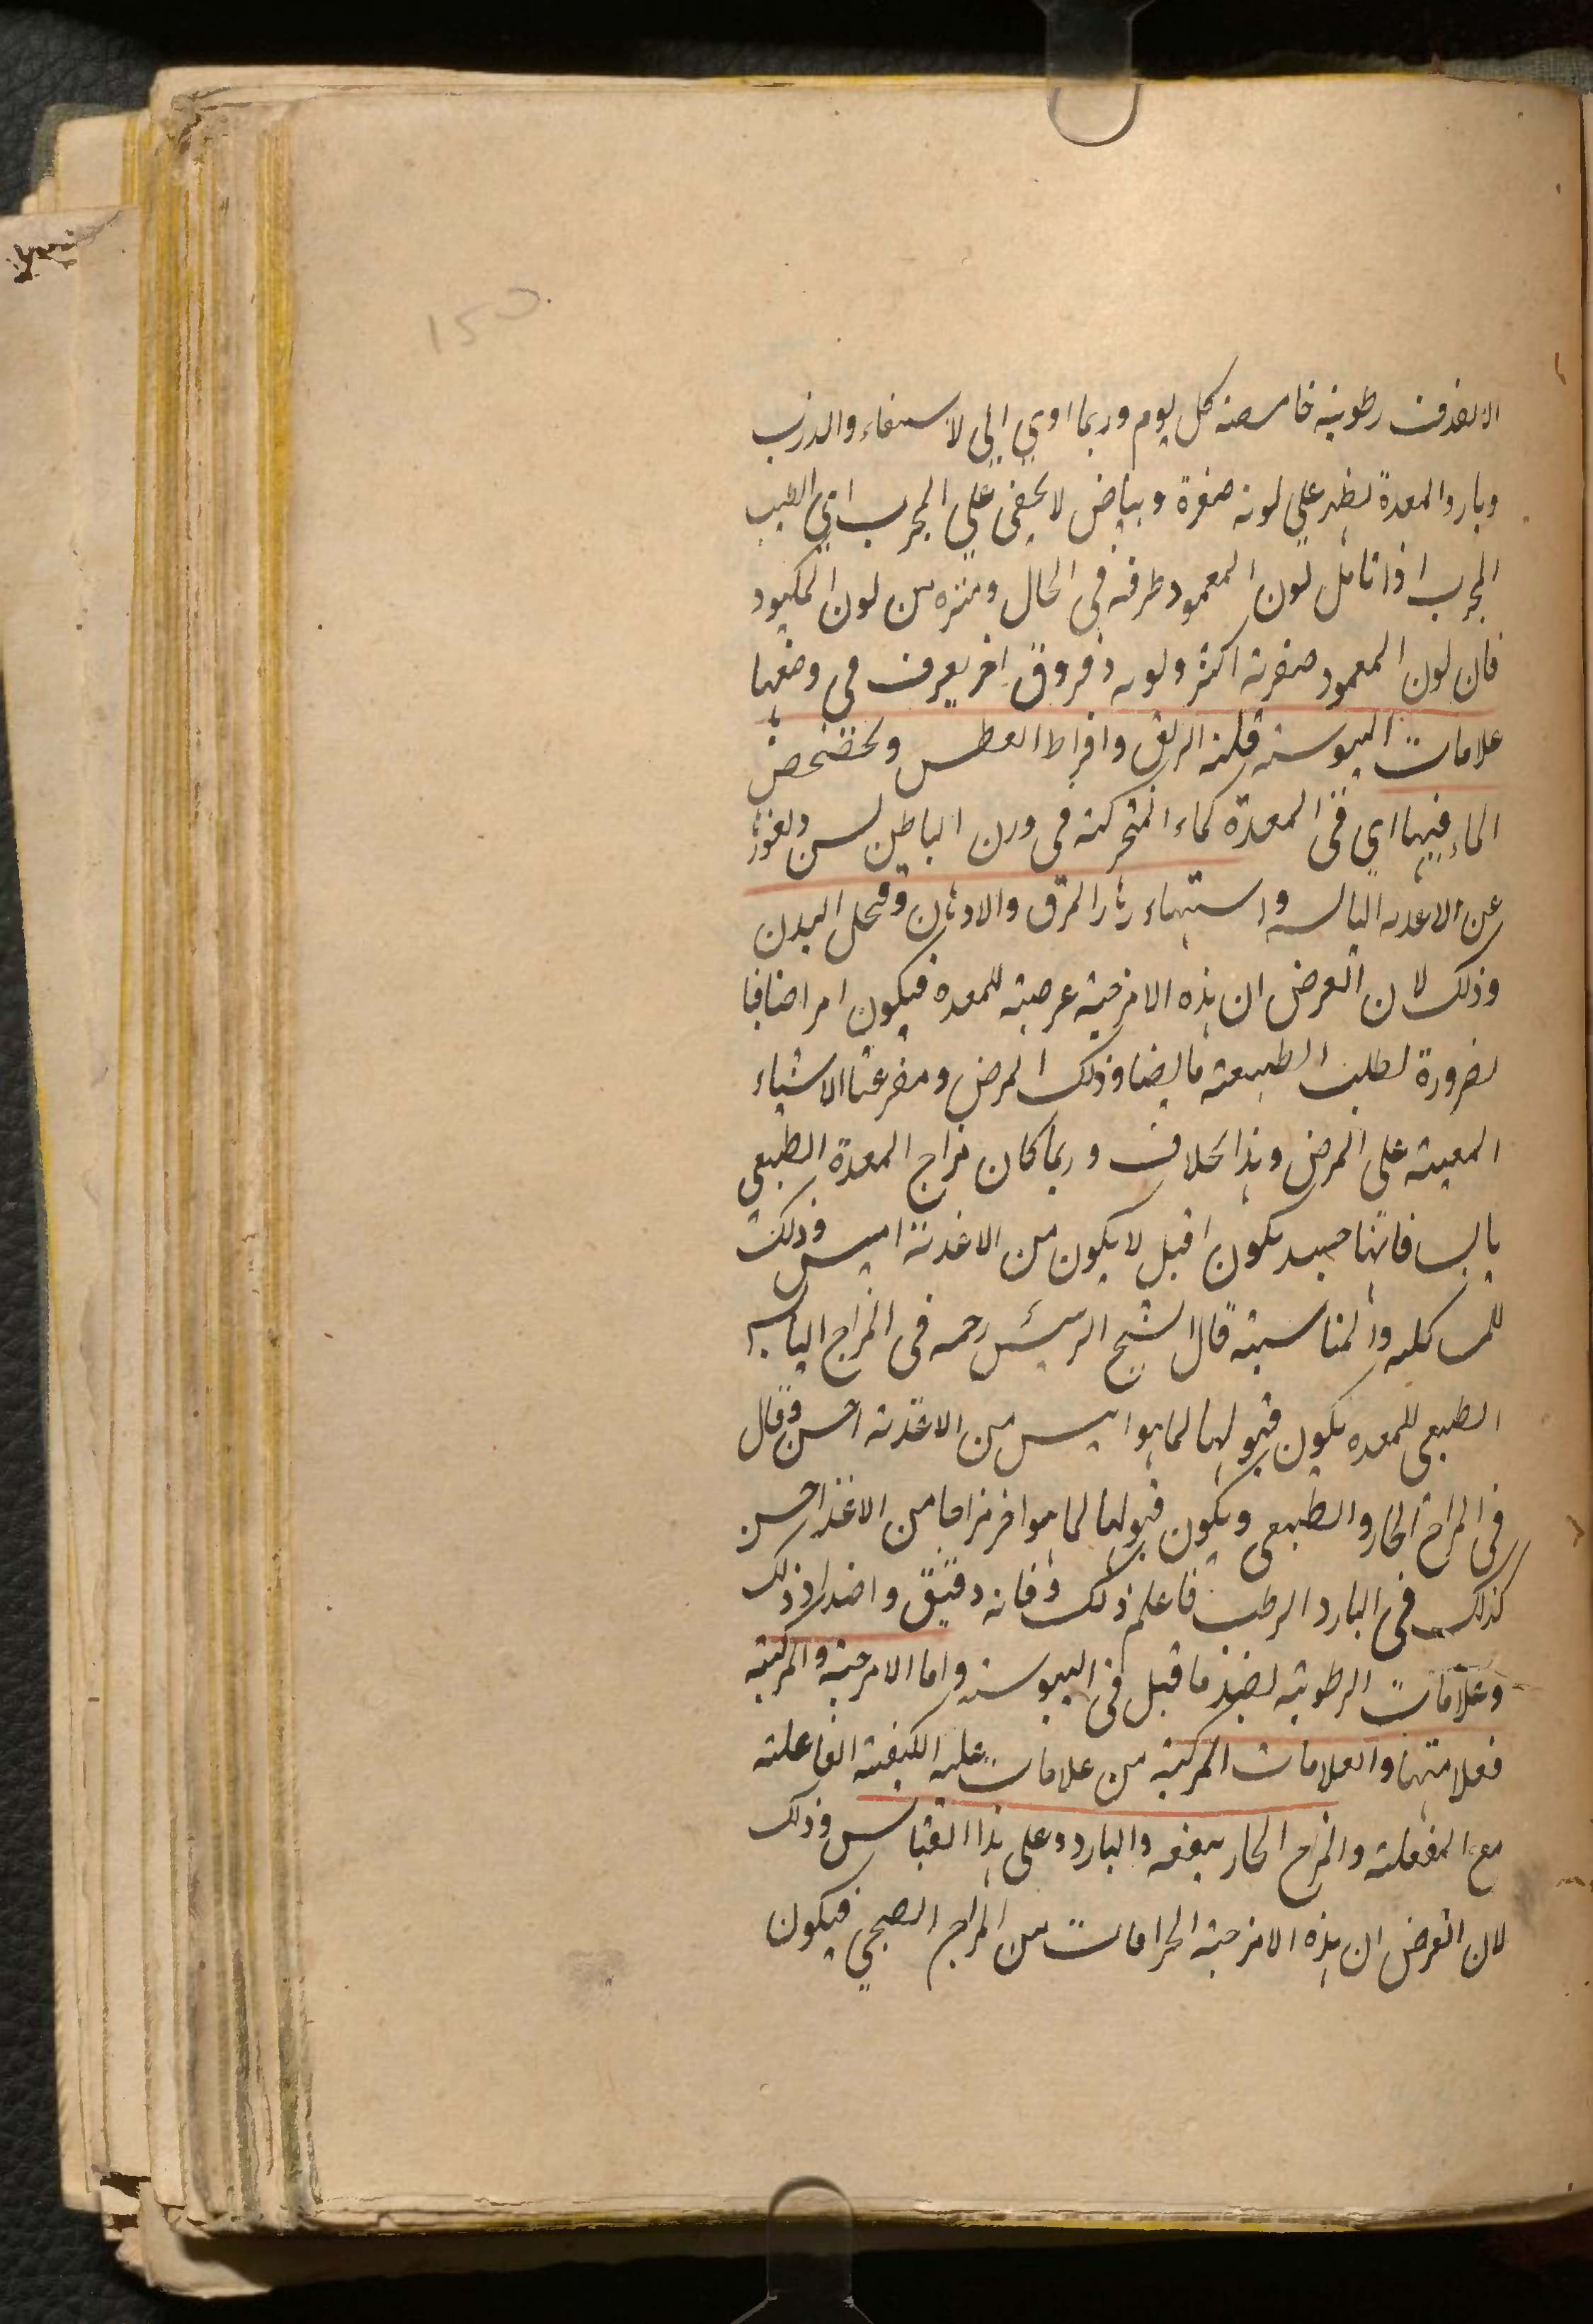 150
الا لقذفت رطوبته خامصته كل يوم وربما اوي الي لاستسقاء والذرب
وبارد المعدة يظهر علي لونه صفرة وبياض لا يخفي علي المجرب اي الطبيب
المجرب اذا تامل لون الممعود طرفه في الحال وميزه من لون المكبود
فان لون الممعود صفرته اكثر ولونه ذ فروق اخر يعرف في وضعها
علامات اليبوسته قلته الريق وافراط العطس وتخضخض
الماء فيها اي في المعدة كماء المتحركته في ورن الباطن لسن ونفورها
عن الاغذيه اليابسه واستهاء هذا المرق والادهان وقحل البدن
وذلك لان الغرض ان هذه الامزجته عرضيته للمعده فيكون امراضا فا
لضرورة لطلب الطبيعته ما يضاد ذلك المرض ومضرعتها الاشياء
المعينته علي المرض وهذا بخلاف وربما كان مزاج المعدة الطبيعي
يابس فانها حينيد يكون اقبل لا يكون من الاغذيته ايبس وذلك
للمساكلته والمناسبته قال الشيخ الرئيس رحمه في المزاج اليابس
الطبيعي للمعده يكون قبولها لما هو ايبس من الاغذيته احسن وقال
في المزاج الحار والطبيعي ويكون قبولها لما هو احر مزاجا من الاغذا احسن
كذلك في البارد الرطب فاعلم ذلك وفانه دقيق واضداد ذلك
وعلامات الرطوبته لضد ما قبل في اليبوسته واما الامزجته والمركبته
فعلامتها والعلامات المركبته من علامات غلبه الكيفيته الفاعلته
مع المنفعلته والمزاج الحار ينفعه والبارد وعلي هذا القياس وذلك
لان الغرض ان هذه الامزجته الحرافات من المزاج الصحي فيكون